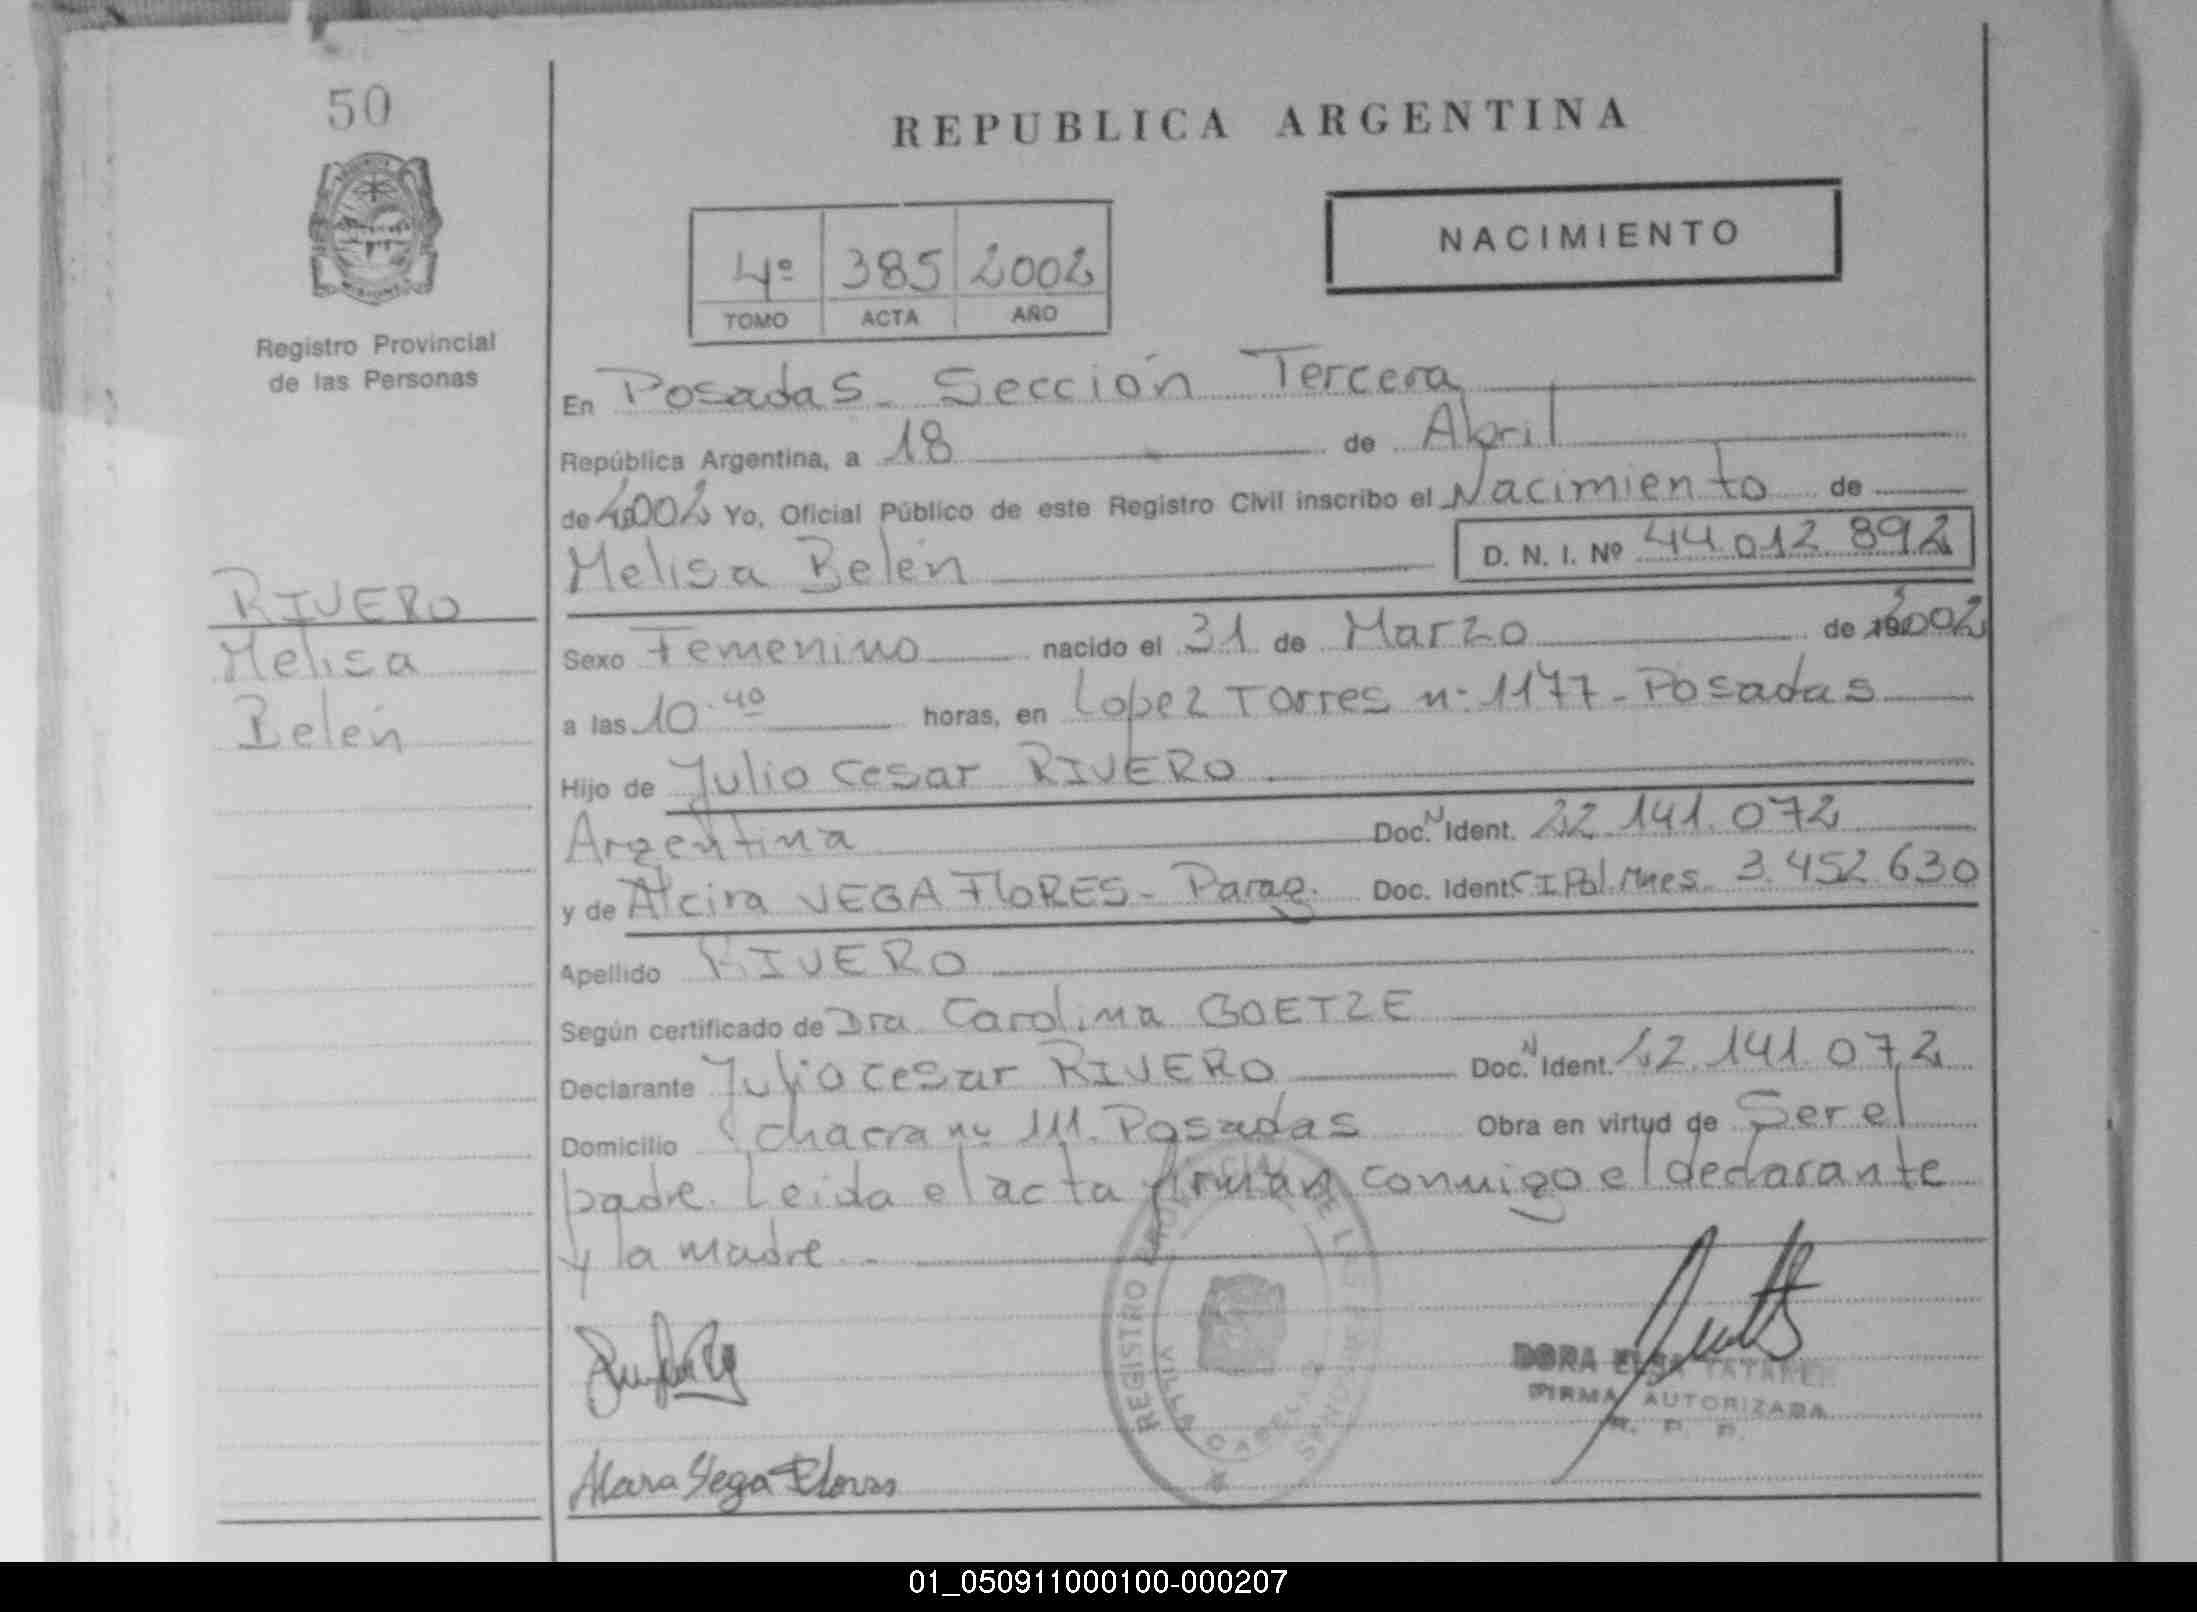 50
REPUBLICA ARGENTINA
NACIMIENTO
4º 385 2002
TOMO ACTA AÑO
Registro Provincial
de las Personas
RIVERO
Melisa
Belén
En Posadas - Sección Tercera
República Argentina, a 18 de Abril
de 2002 Yo, Oficial Público de este Registro Civil inscribo el Nacimiento de
Melisa Belén D. N. I. Nº 44 012 892
Sexo Femenino nacido el 31 de Marzo de 2002
a las 10.40 horas, en Lopez Torres nº 1177 - Posadas
Hijo de Julio Cesar RIVERO
Argentina Doc. N Ident. 22.141.072
y de Alcira VEGA FLORES - Parag. Doc. Ident. C I Pol. Mnes. 3.452 630
Apellido RIVERO
Según certificado de Dra Carolina GOETZE
Declarante Julio cesar RIVERO Doc. N Ident. 22.141.072
Domicilio chacra nº 111. Posadas Obra en virtud de Ser el
padre. Leida el acta firman conmigo el declarante
y la madre
REGISTRO PROVINCIAL DE LAS PERSONAS
VILLA CABELLO
DORA ELSA
FIRMA AUTORIZADA
R. P. P.
Vega Flores
01_050911000100-000207